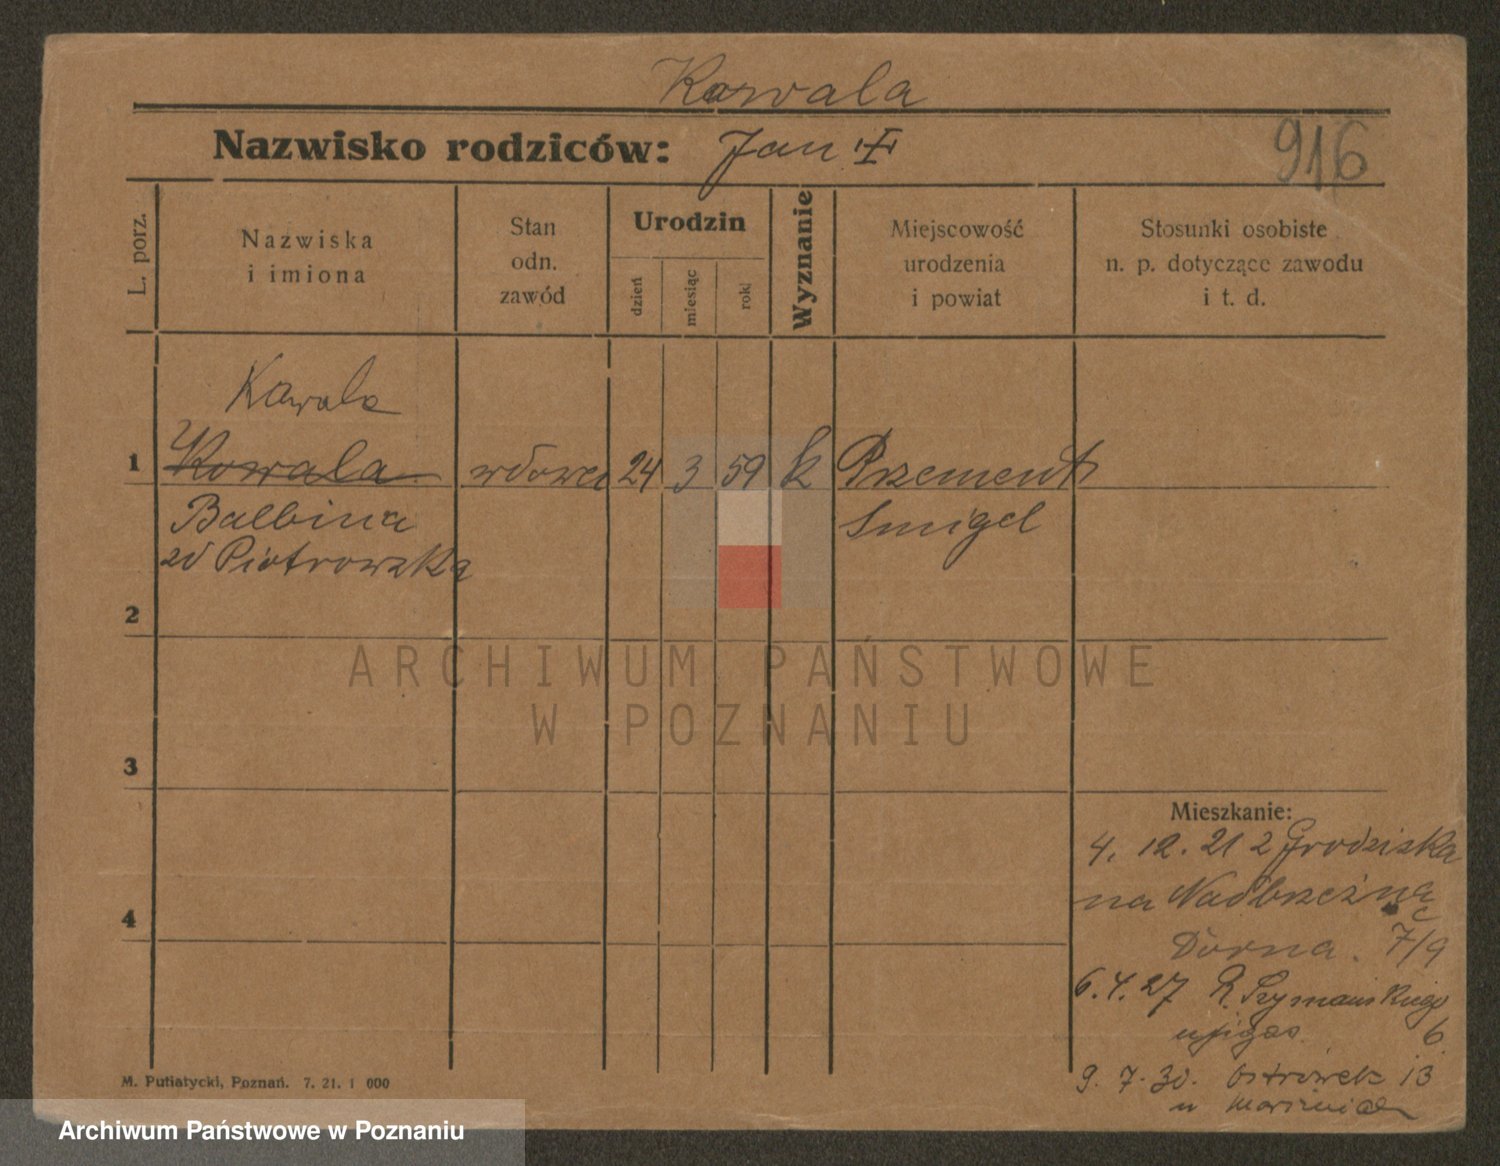 Kowala
Nazwisko rodziców: Jan
916
L. porz.
Nazwiska
i imiona
Stan
odn.
zawód
Urodzin
dzień
miesiąc
rok
Wyznanie
Miejscowość
urodzenia
i powiat
Stosunki osobiste
n. p. dotyczące zawodu
i t. d.
Kawala
1 Kowala wdowa 24 3 59 k Przement
Balbina Smigel
zd Piotrowska
2
3
4
ARCHIWUM PAŃSTWOWE
W POZNANIU
Mieszkanie:
4. 12. 21 2 Grodziska
na Nadbrzeżną
Dorna. 7/9
6.4.27 R. Szymańskiego
6
9. 7. 30. Ostrówek 13
u
M. Putiatycki, Poznań. 7. 21. 1 000
Archiwum Państwowe w Poznaniu